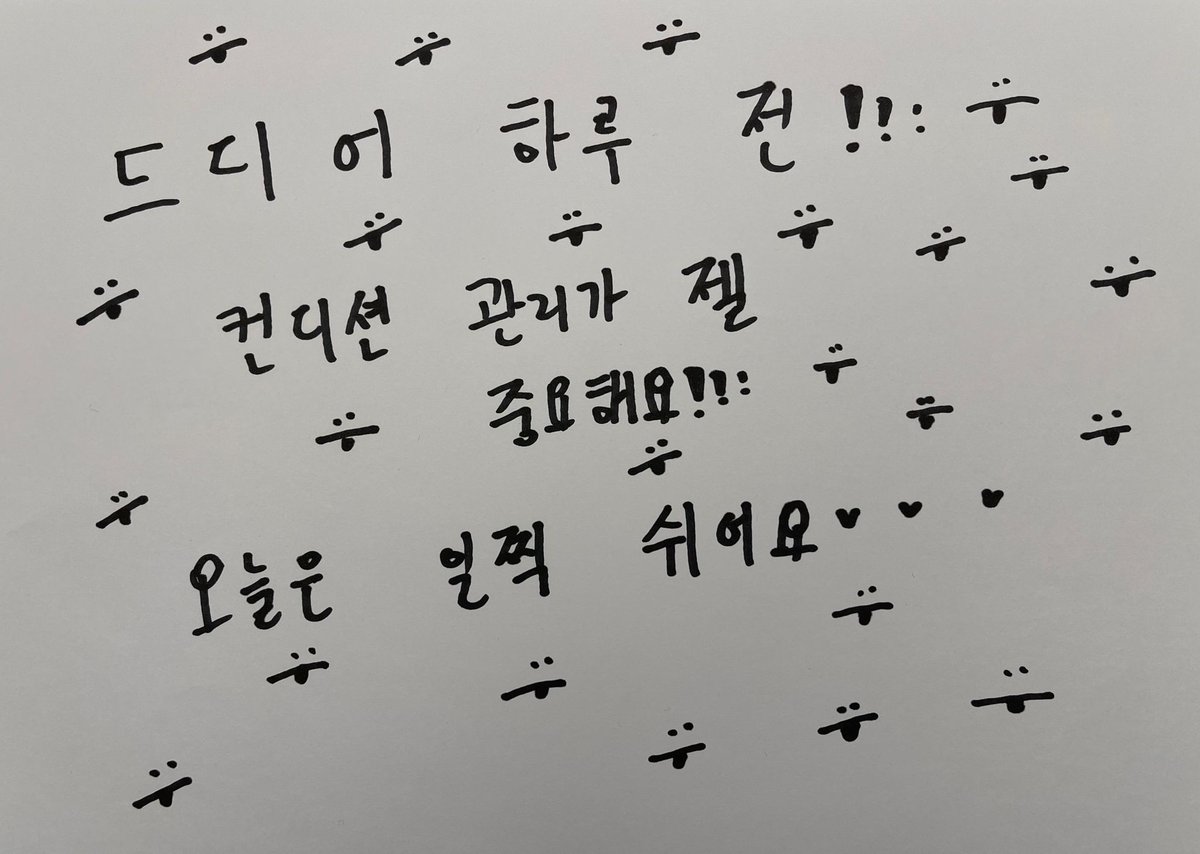 드디어 하루 전!!!
컨디션 관리가 젤
중요해요!!!
오늘은 일찍 쉬어요♥♥♥